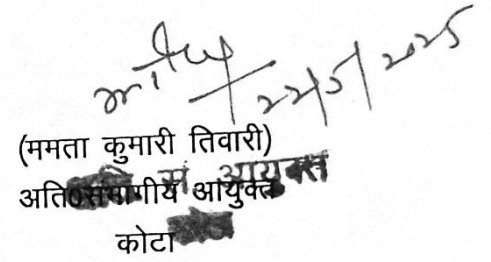 22/5/2025
(ममता कुमारी तिवारी)
अति०संभागीय आयुक्त
कोटा